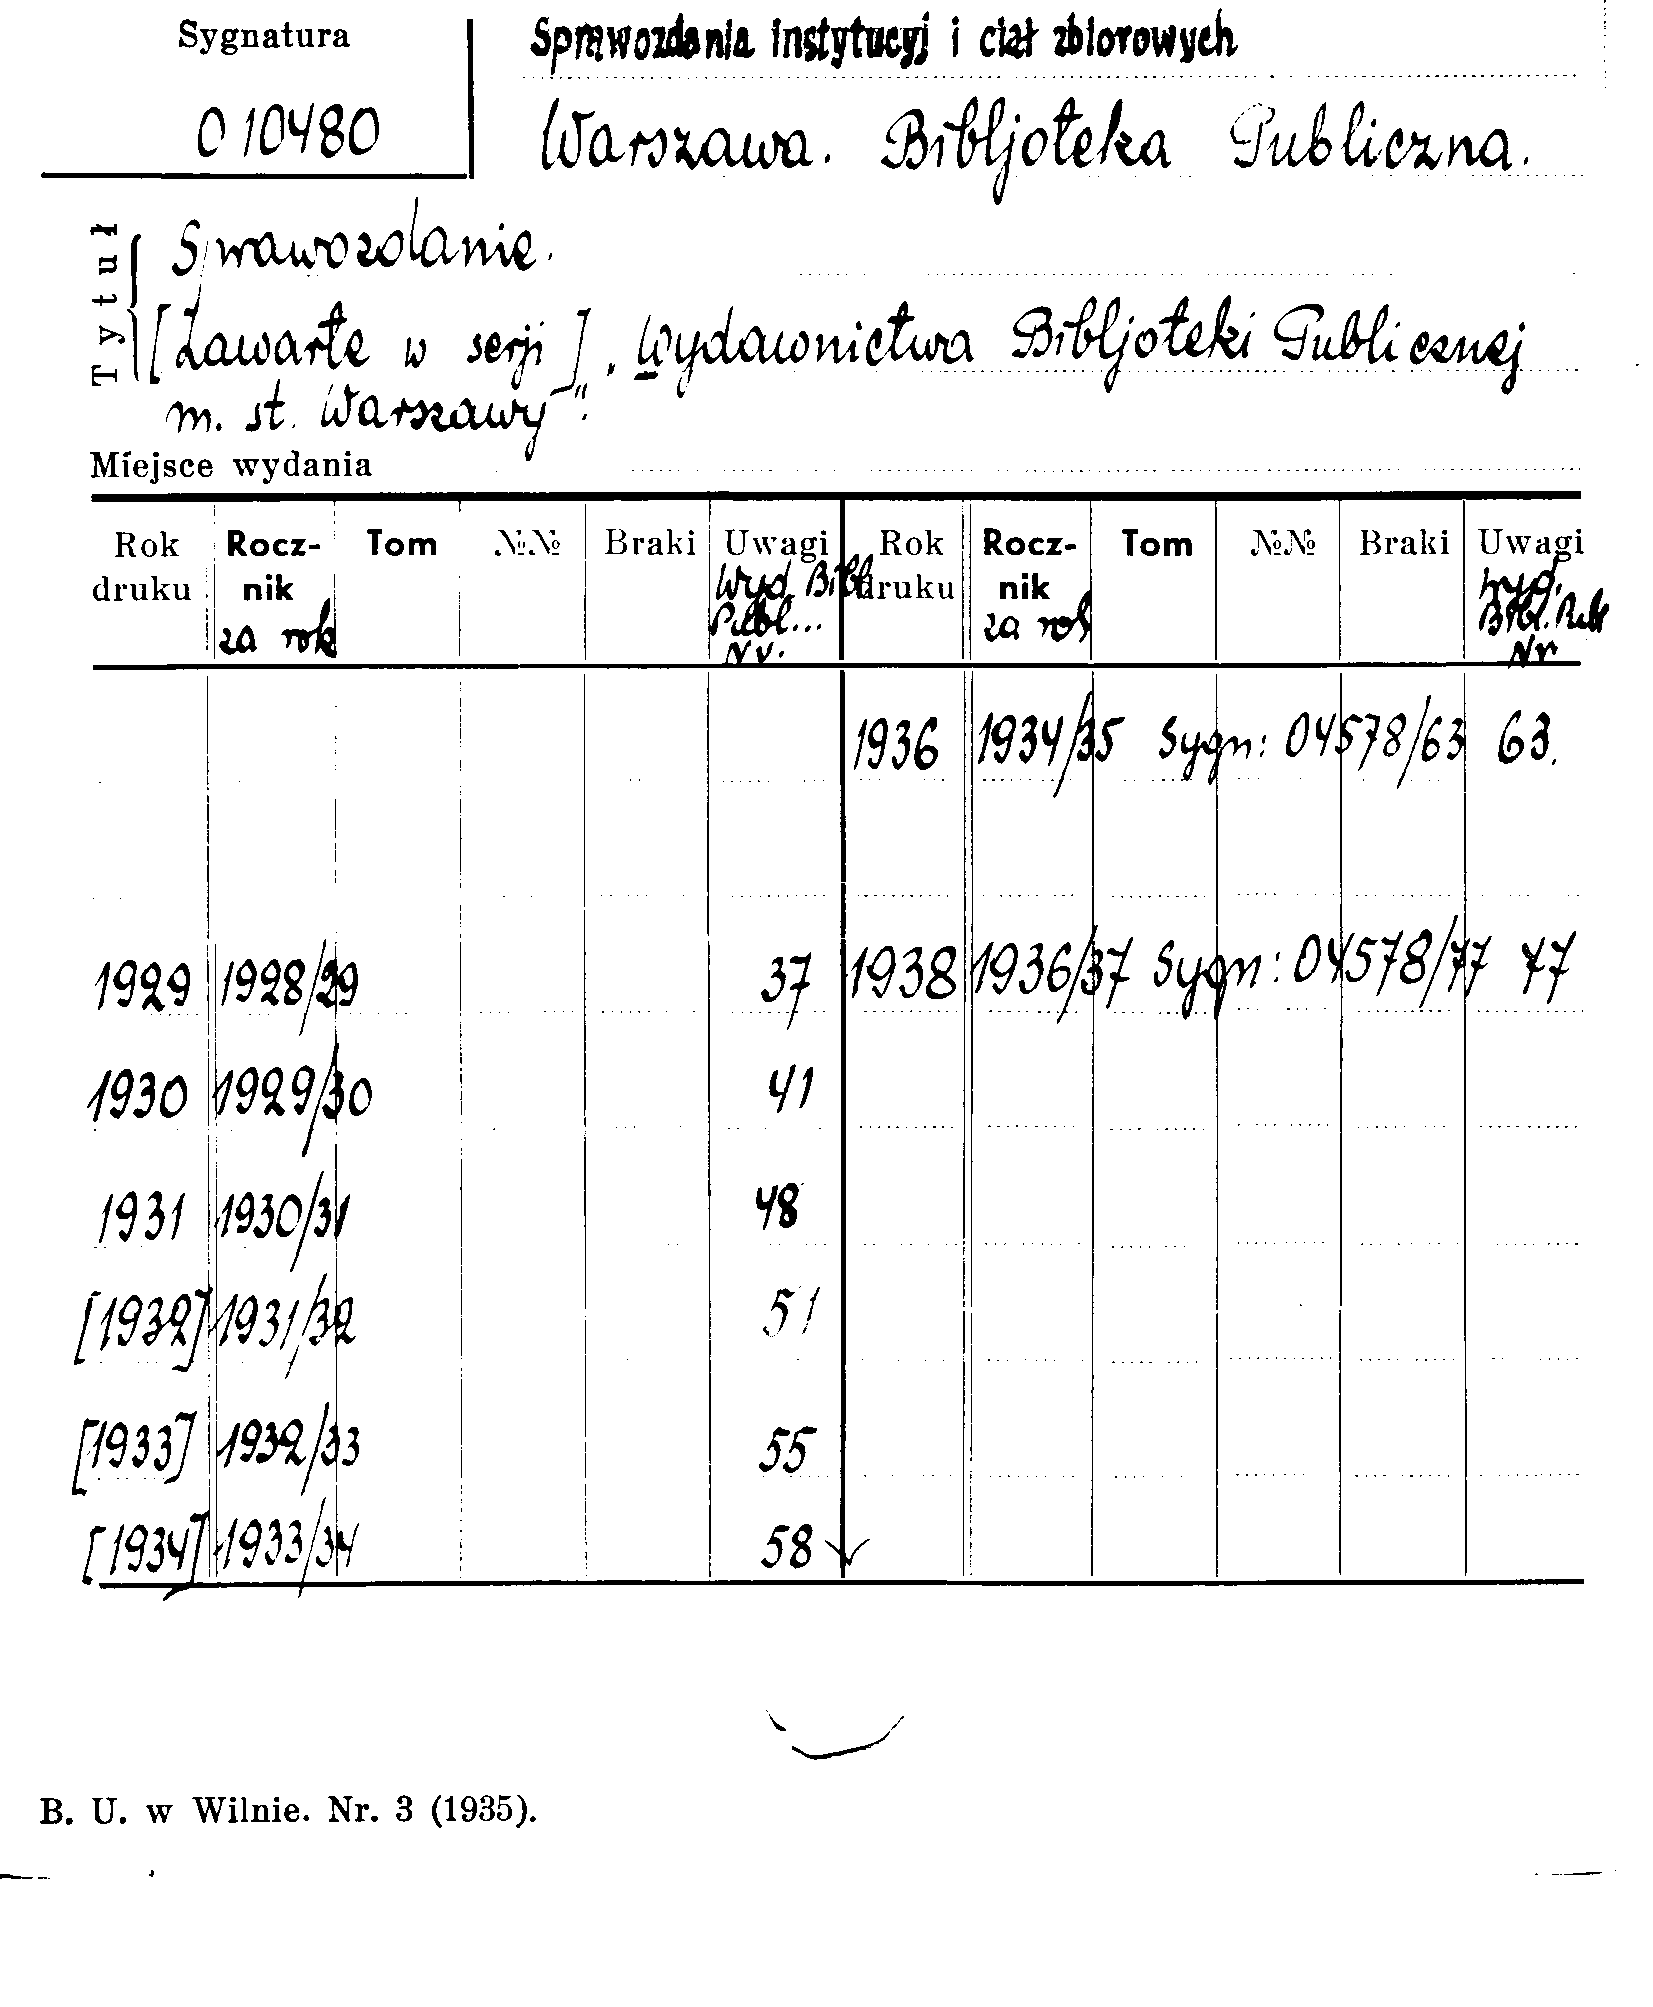 Sygnatura
010480
Sprawozdania instytucyj i ciał zbiorowych
Warszawa. Bibljoteka Publiczna.
Tytuł
Sprawozdanie.
[Zawarte w serji] „Wydawnictwa Bibljoteki Publicznej
m. st. Warszawy".
Miejsce wydania
Rok druku Rocznik za rok Tom №№ Braki Uwagi Wyd. Bibl. Publ... Nr. Rok druku Rocznik za rok Tom №№ Braki Uwagi Wyd. Bibl. Publ Nr
1936 1934/35 Sygn: 04578/63 63.
1929 1928/29 37 1938 1936/37 Sygn: 04578/77 77
1930 1929/30 41
1931 1930/31 48
[1932] 1931/32 51
[1933] 1932/33 55
[1934] 1933/34 58
B. U. w Wilnie. Nr. 3 (1935).